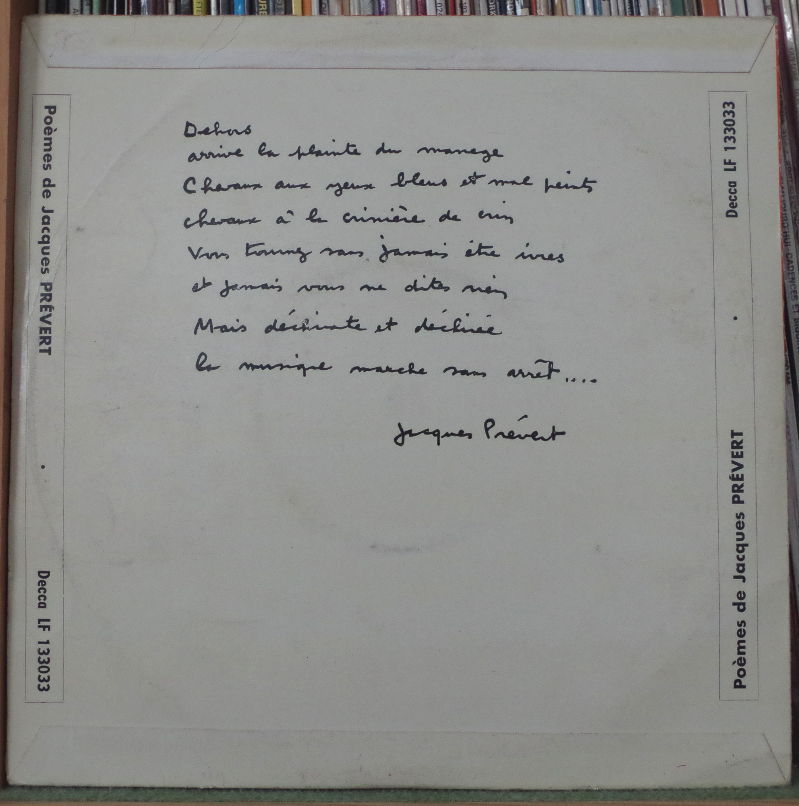 Dehors
arrive la plainte du manege
Chevaux aux yeux bleus et mal peints
chevaux à la crinière de crin
Vous tournez sans jamais être ivres
et jamais vous ne dites rien
Mais déchirante et déchirée
la musique marche sans arrêt....
Jacques Prévert
Poèmes de Jacques PRÉVERT
•
Decca LF 133033
Decca LF 133033
•
Poèmes de Jacques PRÉVERT